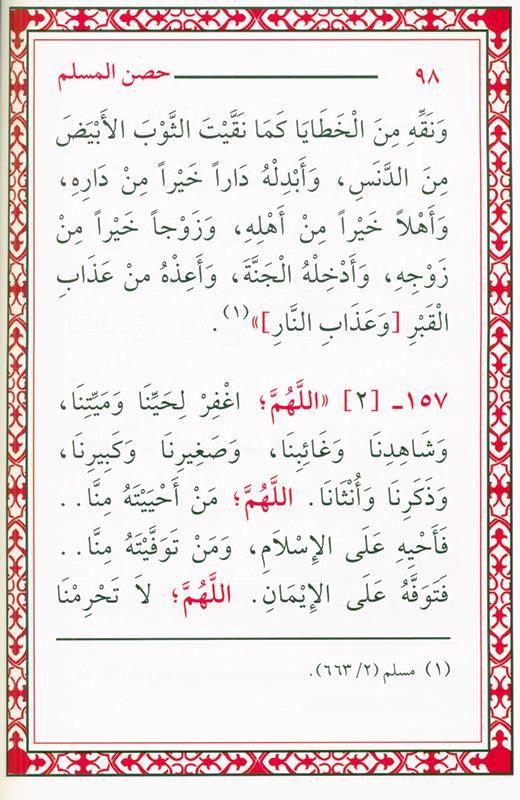 ٩٨ حصن المسلم
وَنَقِّهِ مِنَ الْخَطَايَا كَمَا نَقَّيْتَ الثَّوْبَ الأَبْيَضَ
مِنَ الدَّنَسِ، وَأَبْدِلْهُ دَاراً خَيْراً مِنْ دَارِهِ،
وَأَهْلاً خَيْراً مِنْ أَهْلِهِ، وَزَوْجاً خَيْراً مِنْ
زَوْجِهِ، وَأَدْخِلْهُ الْجَنَّةَ، وَأَعِذْهُ مِنْ عَذَابِ
الْقَبْرِ [وَعَذَابِ النَّارِ]»(١).
١٥٧ـ [٢] «اللَّهُمَّ؛ اغْفِرْ لِحَيِّنَا وَمَيِّتِنَا،
وَشَاهِدِنَا وَغَائِبِنَا، وَصَغِيرِنَا وَكَبِيرِنَا،
وَذَكَرِنَا وَأُنْثَانَا. اللَّهُمَّ؛ مَنْ أَحْيَيْتَهُ مِنَّا..
فَأَحْيِهِ عَلَى الإِسْلَامِ، وَمَنْ تَوَفَّيْتَهُ مِنَّا..
فَتَوَفَّهُ عَلَى الإِيْمَانِ. اللَّهُمَّ؛ لَا تَحْرِمْنَا
(١) مسلم (٢/ ٦٦٣).